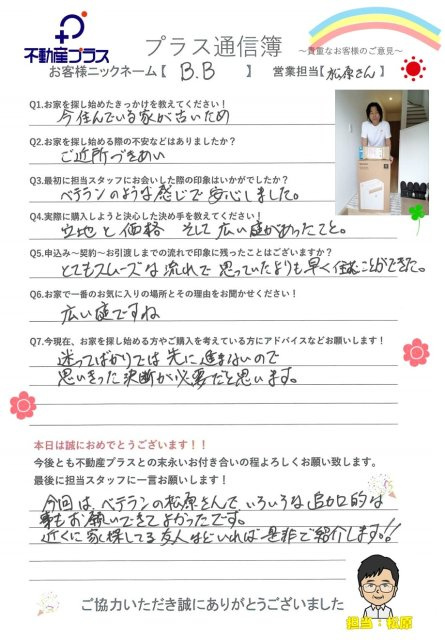 不動産プラス
プラス通信簿
～貴重なお客様のご意見～
お客様ニックネーム【 B.B 】 営業担当【松原さん】
Q1.お家を探し始めたきっかけを教えてください！
今住んでいる家が古いため
Q2.お家を探し始める際の不安などはありましたか？
ご近所づきあい
Q3.最初に担当スタッフにお会いした際の印象はいかがでしたか？
ベテランのような感じで安心しました。
Q4.実際に購入しようと決心した決め手を教えてください！
立地と価格 そして広い庭があったこと。
Q5.申込み～契約～お引渡しまでの流れで印象に残ったことはございますか？
とてもスムーズな流れで思っていたよりも早く住むことができた。
Q6.お家で一番のお気に入りの場所とその理由をお聞かせください！
広い庭ですね
Q7.今現在、お家を探し始める方やご購入を考えている方にアドバイスなどお願いします！
迷ってばかりでは先に進まないので
思いきった決断が必要だと思います。
本日は誠におめでとうございます！！
今後とも不動産プラスとの末永いお付き合いの程よろしくお願い致します。
最後に担当スタッフに一言お願いします！
今回は、ベテランの松原さんで、いろいろな追加的な
事もお願いできてよかったです。
近くに家探してる友人などいれば是非ご紹介します!!
担当：松原
ご協力いただき誠にありがとうございました